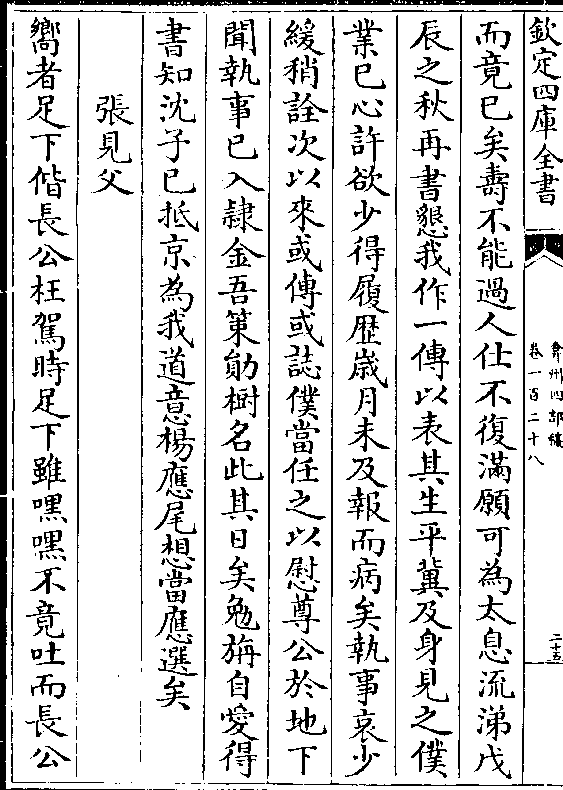 欽定四庫全書
弇州四部稿
卷一百二十八
二十五
而竟已矣壽不能過人仕不復滿願可為太息流涕戊
辰之秋再書懇我作一傳以表其生平冀及身見之僕
業已心許欲少得履歴歳月未及報而病矣執事哀少
緩稍詮次以來或傳或誌僕當任之以慰尊公於地下
聞執事已入隷金吾策勛樹名此其日矣勉旃自愛得
書知沈子已抵京為我道意楊應尾想當應選矣
張見父
嚮者足下偕長公枉駕時足下雖嘿嘿不竟吐而長公